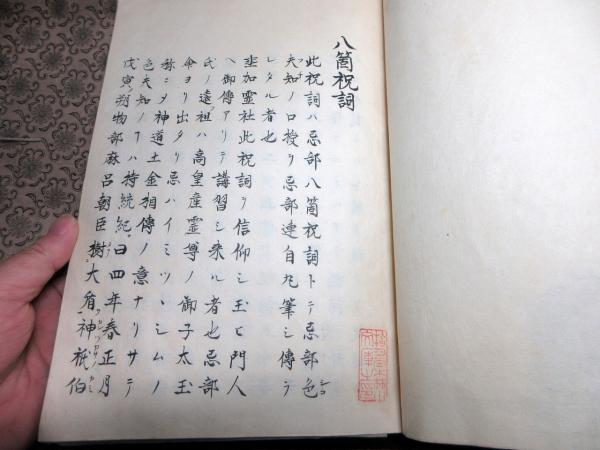 八箇祝詞
此祝詞ハ忌部八箇祝詞トテ忌部色
夫知ノ口授ヲ忌部連自丸筆シ傳ヘ
レタル者也
垂加霊社此祝詞ヲ信仰シ玉ヒ門人
ヘ御傳アリテ講習シ来ル者也忌部
氏ノ遠祖ハ高皇産霊尊ノ御子太玉
命ヨリ出タリ忌ハイミツヽシムノ
称ニメ神道土金相傳ノ意ナリサテ
色夫知ノ𬼀ハ持統紀曰四年春正月
戊寅朔物部麻呂朝臣樹大盾神祇伯